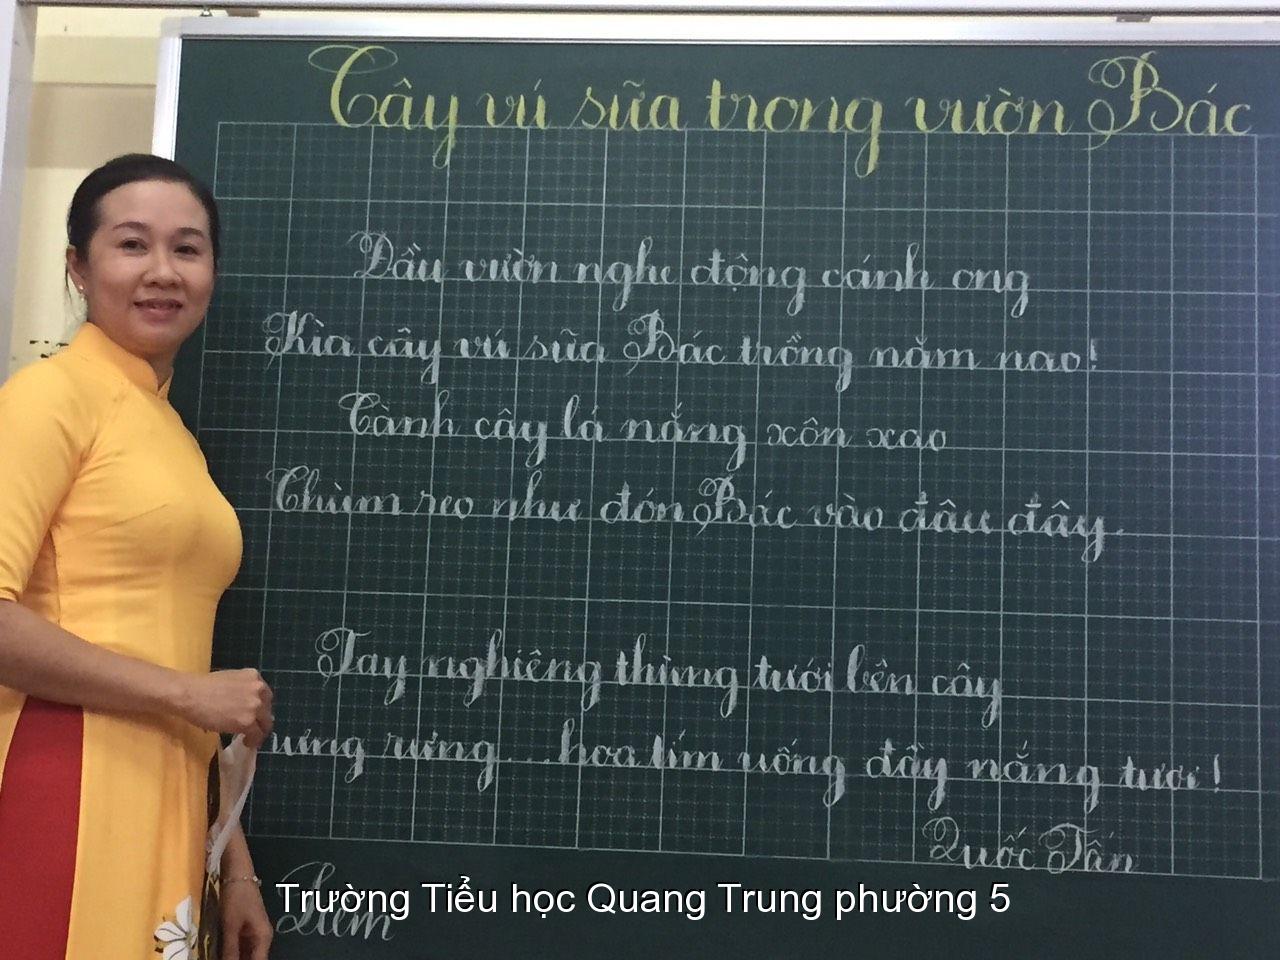 Cây vú sữa trong vườn Bác
Đầu vườn nghe động cánh ong
Kìa cây vú sữa Bác trồng năm nao!
Cành cây lá nắng xôn xao
Chùm reo như đón Bác vào đâu đây.
Tay nghiêng thùng tưới bên cây
ưng rưng...hoa tím uống đầy nắng tươi!
Quốc Tấn
Trường Tiểu học Quang Trung phường 5